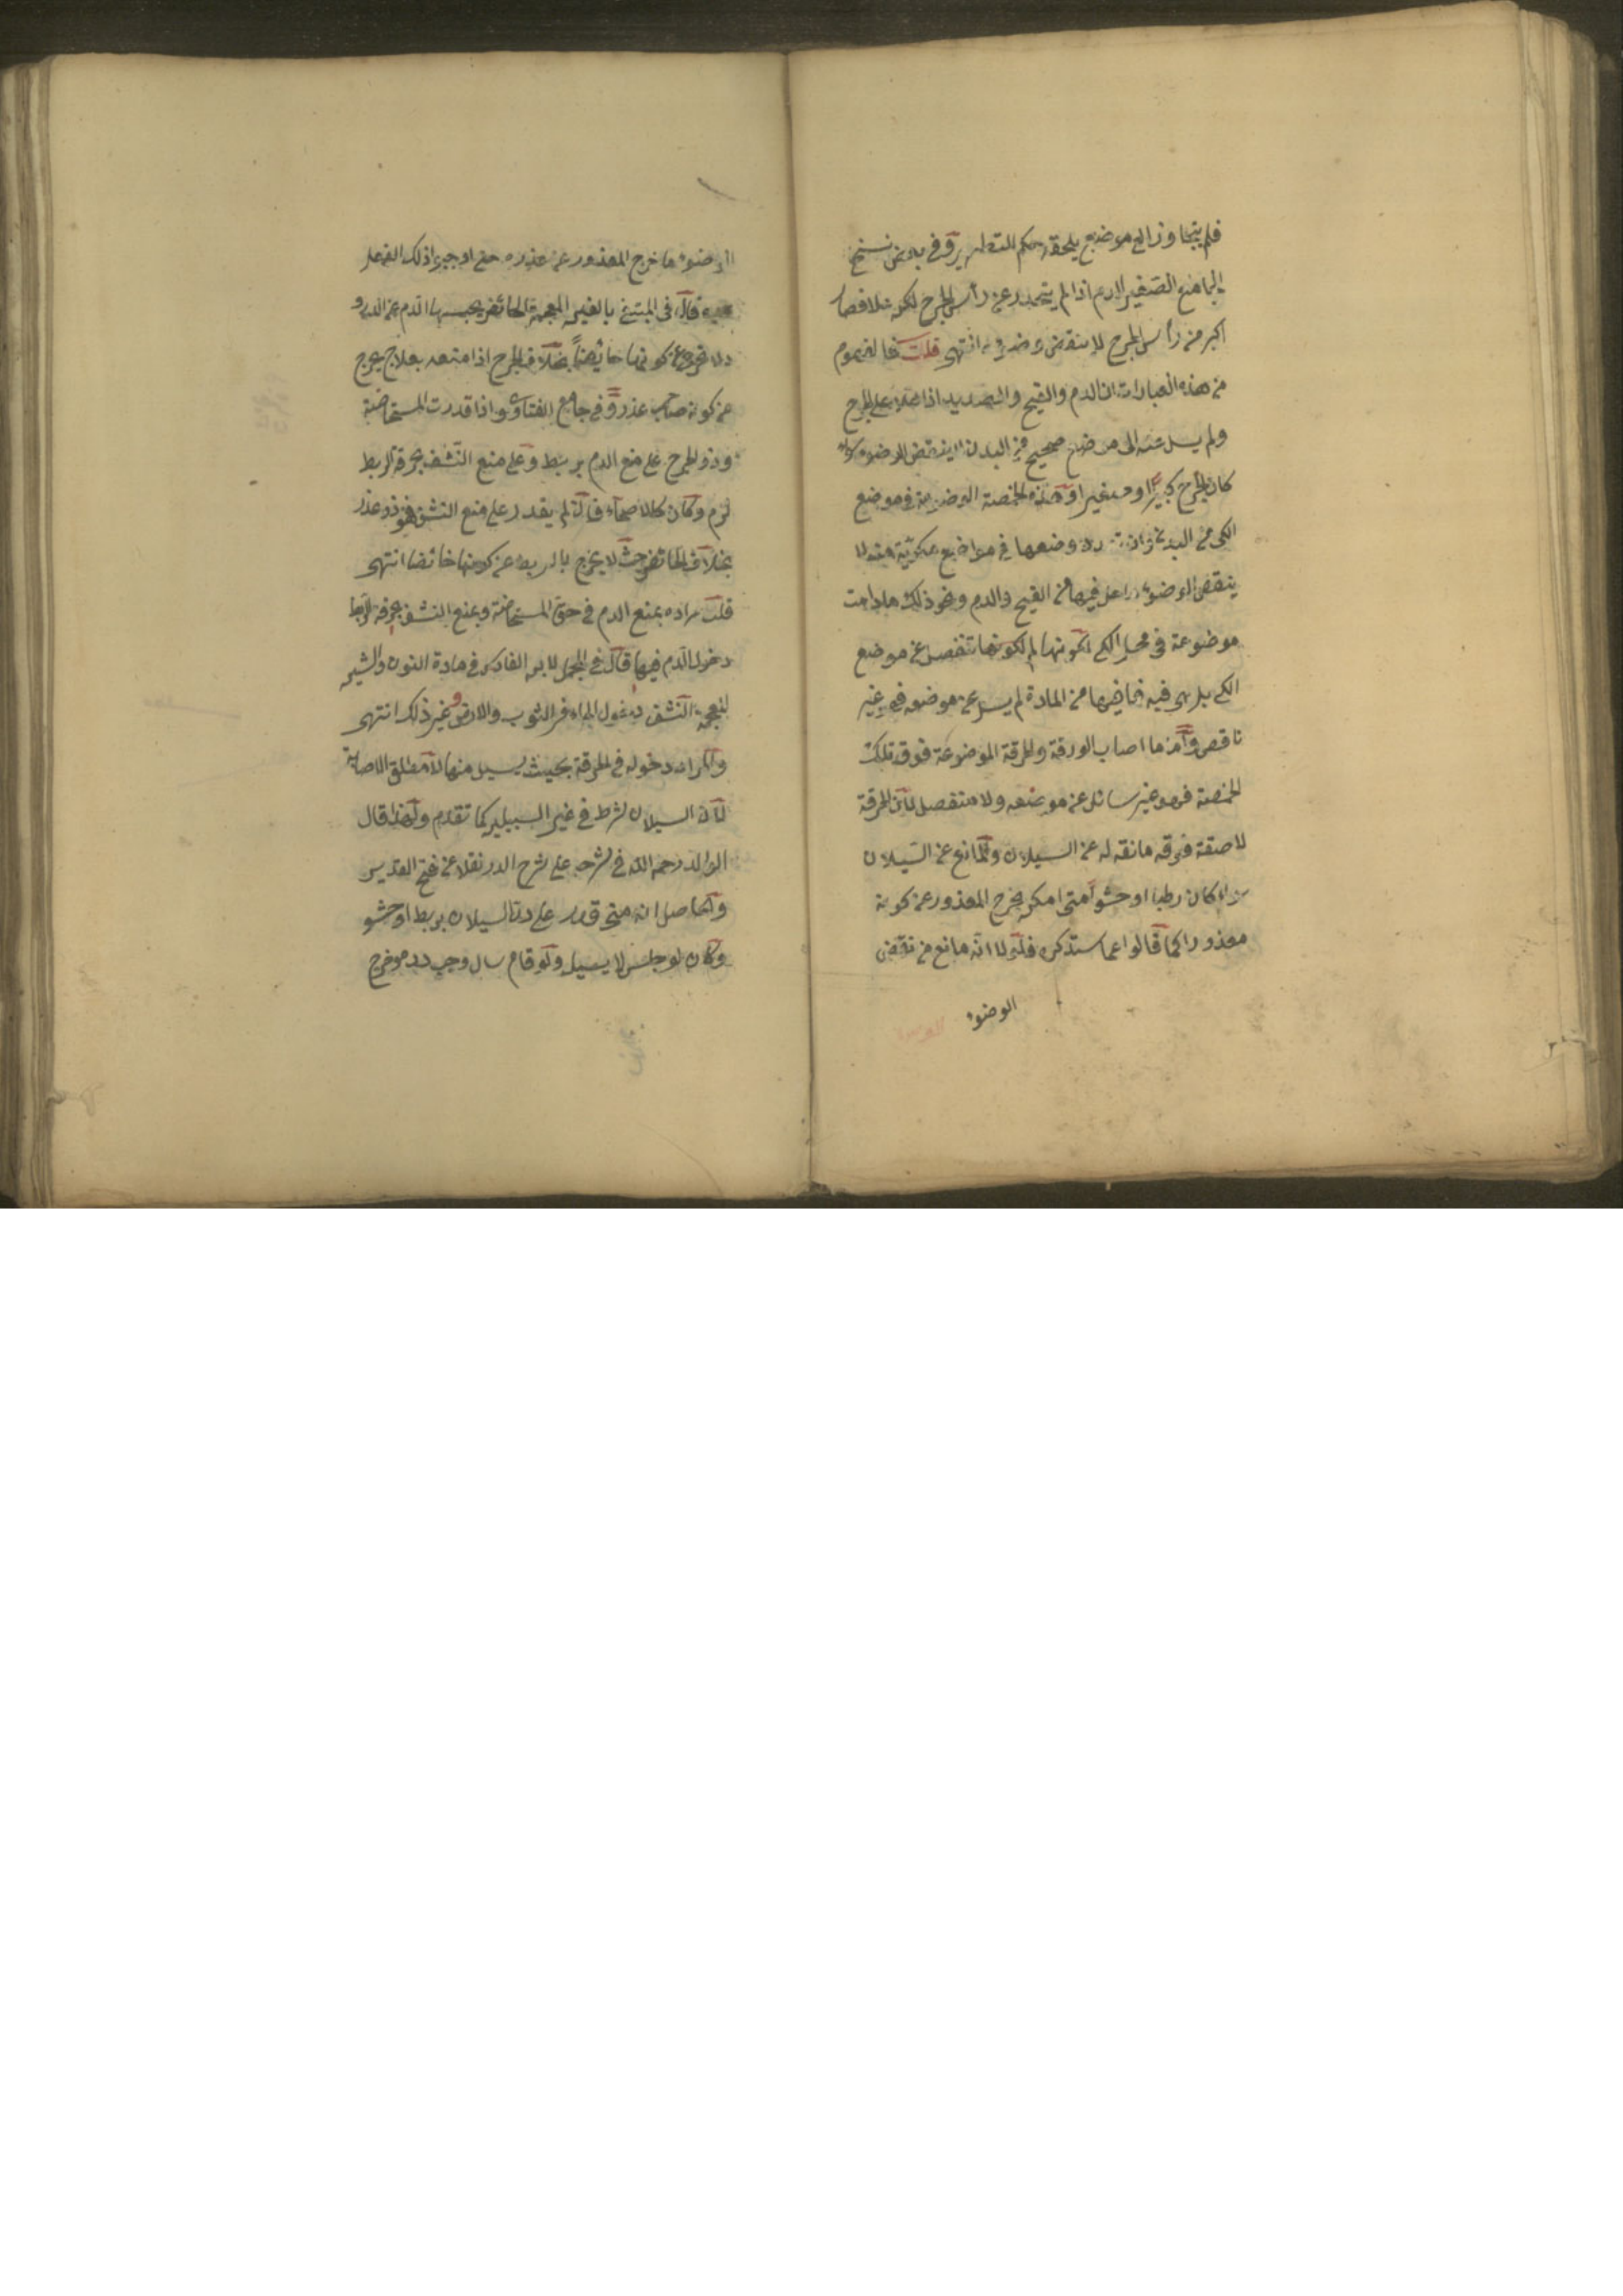 فلم يتجاوز الى موضع يلحقه حكم التطهير وفي بعض نسخ
الجامع الصغير الدم اذا لم يتحدر عن رأس الجرح لكن علا فصار
اكبر من رأس الجرح لا ينتقض وضوؤه انتهى قلت فالمفهوم
من هذه العبارات ان الدم والقيح والصديد اذا علا على الجرح
ولم يسل عنه الى موضع صحيح من البدن لا ينقض الوضوء سواء
كان الجرح كبيرا او صغيرا وهذه الحمصة الموضوعة في موضع
الكي من البدن
ينقض الوضوء ما حل فيها من القيح والدم ونحو ذلك ما دامت
موضوعة في محل الكي لكونها لم تنفصل عن موضع
الكي بل هي فيه فما فيها من المادة لم يسل عن موضعه فهو غير
ناقض وأما ما اصاب الورقة والخرقة الموضوعة فوق تلك
الحمصة فهو غير سائل عن موضعه ولا منفصل لأن الخرقة
لاصقة فوقه مانعة له عن السيلان والمانع عن السيلان
سواء كان ربطا او حشوا متى امكن يخرج المعذور عن كونه
معذورا كما قالوا مما سنذكره فلولا انه مانع من نقض
الوضوء
الوضوء ما خرج المعذور عن عذره حتى اوجبوا ذلك الفعل
عليه قال في المبتغى بالغين المعجمة الحائض يحبسها الدم عن الدرور
لا تخرج عن كونها حائضاً بخلاف الجرح اذا منعه بعلاج يخرج
عن كونه صاحب عذر وفي جامع الفتاوى واذا قدرت المستحاضة
وذو الجرح على منع الدم بربط وعلى منع النشف بخرقة الربط
لزم وكان كالاصحاء فان لم يقدر على منع النشف فهو ذو عذر
بخلاف الحائض حيث لا يخرج بالربط عن كونها حائضا انتهى
قلت مراده بمنع الدم في حق المستحاضة وبمنع النشف بخرقة الربط
دخول الدم فيها قال في المجمل لابن الفارس في مادة النون والشين
المعجمة النشف دخول الماء في الثوب والارض وغير ذلك انتهى
والمراد دخوله في الخرقة بحيث يسيل منها لا مطلق الاصابة
لأن السيلان شرط في غير السبيلين كما تقدم ولهذا قال
الوالد رحمه الله في شرحه على شرح الدرر نقلا عن فتح القدير
والحاصل انه متى قدر على رد السيلان بربط او حشو
وكان لو جلس لا يسيل ولو قام سال وجب رده وخرج